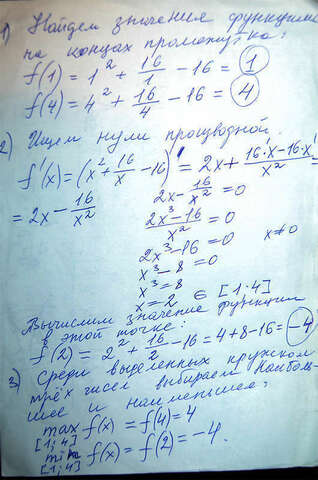 1) Найдем значения функции
на концах промежутка:
f(1) = 1² + 16/1 - 16 = 1
f(4) = 4² + 16/4 - 16 = 4
2) Ищем нули производной.
f'(x) = (x² + 16/x - 16)' = 2x + (16'·x - 16·x')/x² =
= 2x - 16/x²
2x - 16/x² = 0
(2x³ - 16)/x² = 0
2x³ - 16 = 0 x ≠ 0
x³ - 8 = 0
x³ = 8
x = 2 ∈ [1;4]
Вычислим значение функции
в этой точке:
f(2) = 2² + 16/2 - 16 = 4 + 8 - 16 = -4
3) Среди выделенных кружком
трёх чисел выбираем наиболь-
шее и наименьшее:
max f(x) = f(4) = 4
[1;4]
min f(x) = f(2) = -4.
[1;4]